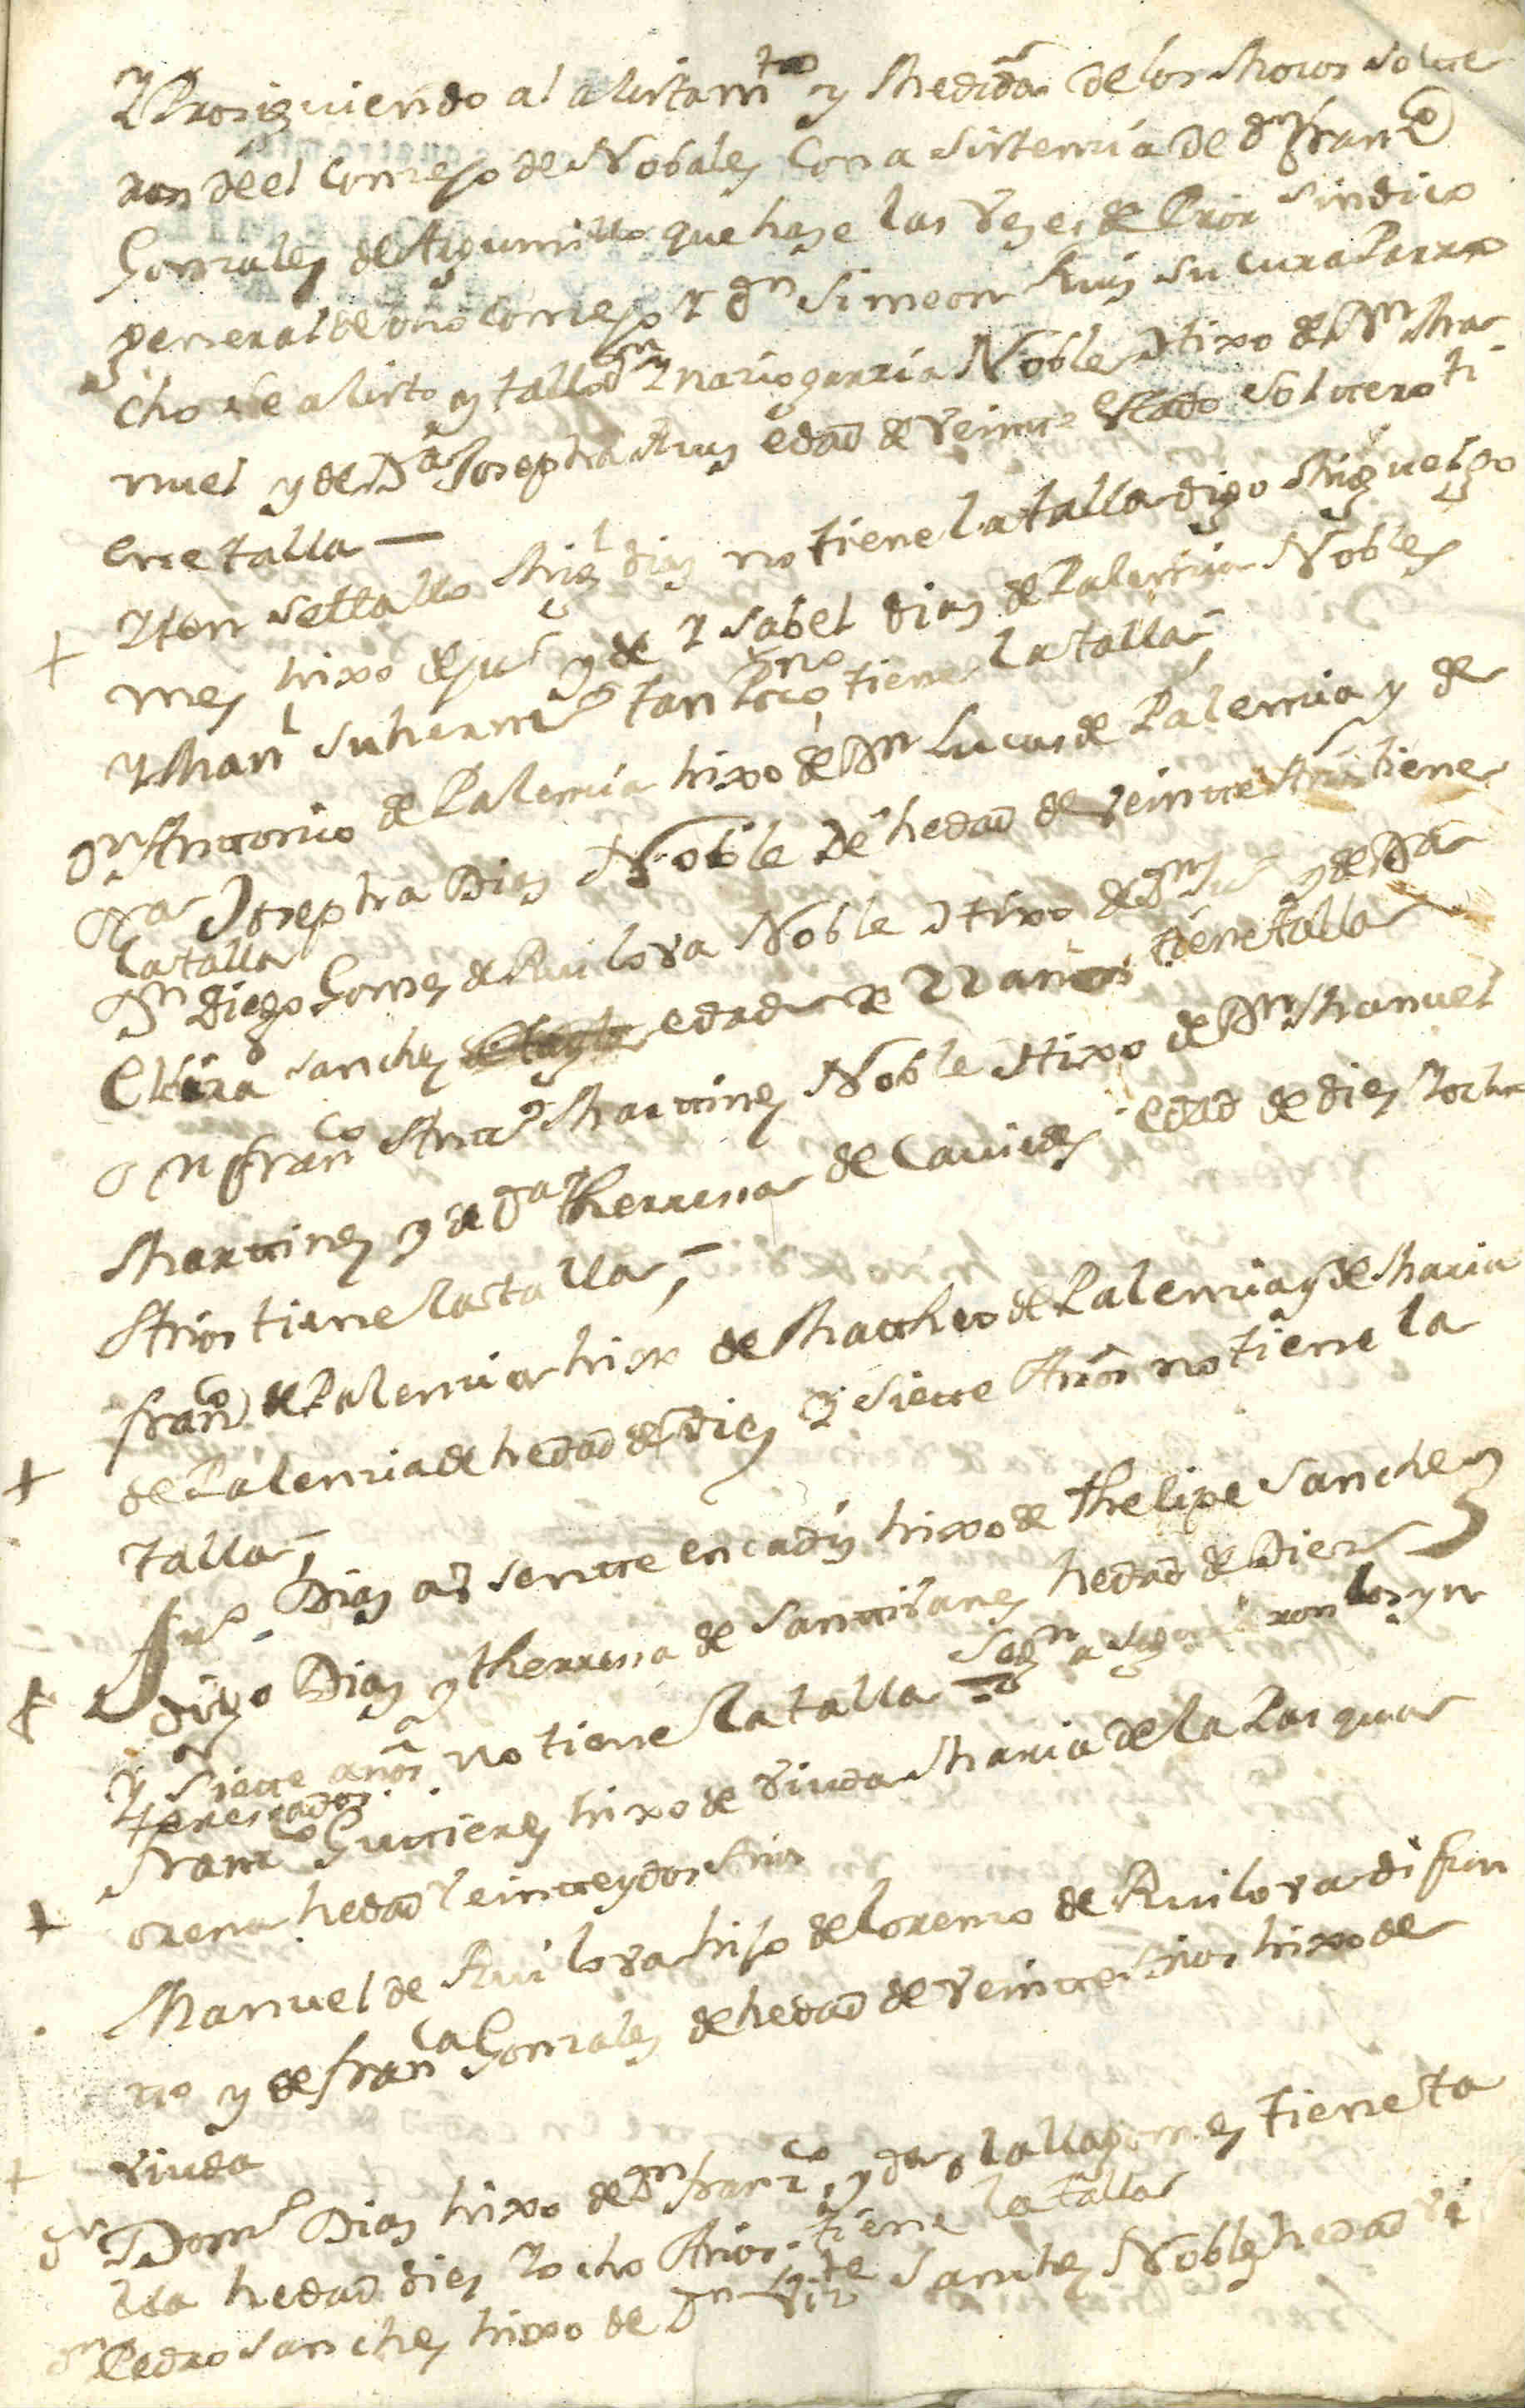 Y Prosiguiendo al alistamto y Medida de los Mozos solte
ros de el Conzejo de Nobales Con asistenzia de dn Franco
Gonzalez de Argumillo que haze las Vezes de Pror Sindico
general de dho Conzejo Y dn Simeon Ruiz su cura Parro
cho se alisto y tallo dn Ynazio garzia Noble Hixo de Dn Ma
nuel y de Da Josepha Ruiz edad de Veinte estado soltero ti
ene talla —
Yten se tallo Migl diaz no tiene la talla digo Miguel go
mez hixo de Jun y de Ysabel diaz de Palenzia Nobles
Y Manl su hermo tan Poco tiene la talla
Dn Antonio de Palenzia hixo de Dn Lucas de Palenzia y de
Da Josepha Diaz Noble De hedad de Veinte Años tiene
la talla
Dn Diego Gomez de Ruilova Noble Hixo de Dn Jun y de Da
Elvira Sanchez edad de 22 años tiene talla
Dn Franco Anto Martinez Noble Hixo de Dn Manuel
Martinez y de Da Theresa de Caviedes edad de diez Yocho
Años tiene la talla
franco de Palenzia hixo de Matheo de Palenzia y de Maria
de Palenzia de hedad de Diez Y siete Años no tiene la
talla
Jun Diaz ausente en cadiz hixo de Phelipe Sanchez
digo Diaz y Theresa de Santivañez hedad de Diez
y siete años no tiene la talla segn aseguraron los yn
teresados
Franco Gutierez hixo de Viuda Maria de la Pasqua
orena hedad Veinte y dos Años
Manuel de Ruilova hijo de Lorenzo de Ruilova difun
to y de franca Gonzalez de hedad de Veinte Años hixo de
Viuda
Dn Domo Diaz hixo de Dn Franco y da gomez tiene ta
lla hedad diez Yocho Años tiene la talla
Dn Pedro Sanchez hixo de Dn Vizte Sanchez Noble hedad Vei